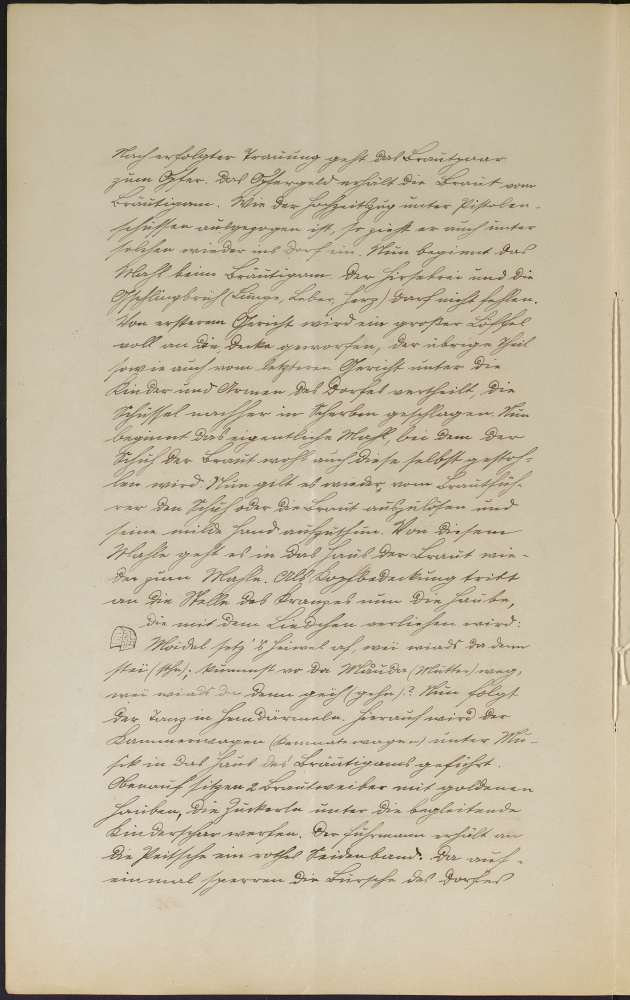 Nach erfolgter Trauung geht das Brautpaar
zum Opfer. Das Opfergeld erhält die Braut vom
Bräutigam. Wie der Hochzeitszug unter Pistolen-
schüssen ausgezogen ist, so zieht er auch unter
solchen wieder ins Dorf ein. Nun beginnt das
Mahl beim Bräutigam. Der Hirsebrei und die
(Lunge, Leber, Herz) darf nicht fehlen.
Von ersterem Gericht wird ein großer Löffel
voll an die Decke geworfen, der übrige Theil
sowie auch vom letzteren Gericht unter die
Kinder und Armen des Dorfes vertheilt, die
Schüssel nachher in Scherben geschlagen. Nun
beginnt das eigentliche Mahl, bei dem der
Schuh der Braut wohl auch diese selbst gestoh-
len wird. Nun gilt es wieder, vom Brautfüh-
rer den Schuh oder die Braut auszulösen und
seine milde Hand aufzuthun. Von diesem
Mahle geht es in das Haus der Braut wie-
der zum Mahle. Als Kopfbedeckung tritt
an die Stelle des Kranzes nun die Haube,
die mit dem Liedchen verliehen wird:
Moidal setz's Heiwel af, wei wiads da denn
stei (stehn); kümmst vo da Mauda (Mutter) weg,
wei wiads da denn geih (gehn)? Nun folgt
der Tanz in Hemdärmeln. Hierauf wird der
Kammerwagen (Kemnatewagen) unter Mu-
sik in das Haus des Bräutigams geführt.
Obenauf sitzen 2 Brautweiber mit goldenen
Hauben, die Zuckerln unter die begleitende
Kinderschar werfen. Der Fuhrmann erhält an
die Peitsche ein rothes Seidenband. Da auf-
einmal sperren die Bursche des Dorfes